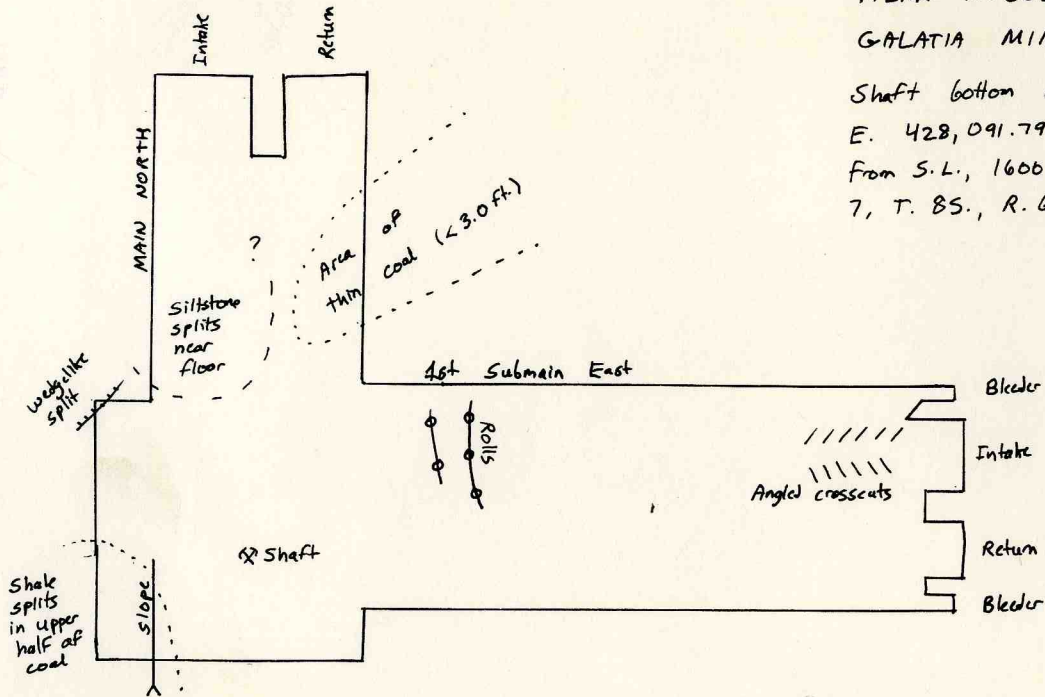 GALATIA MIN
Shaft bottom
E. 428,091.79
From S.L., 1600
7, T. 8S., R. 6
Intake
Return
MAIN NORTH
Area of
thin coal (<3.0 ft.)
?
Siltstone
splits
near
floor
wedgelike
split
1st Submain East
Rolls
Angled crosscuts
Bleeder
Intake
Return
Bleeder
Shaft
Slope
Shale
splits
in upper
half of
coal